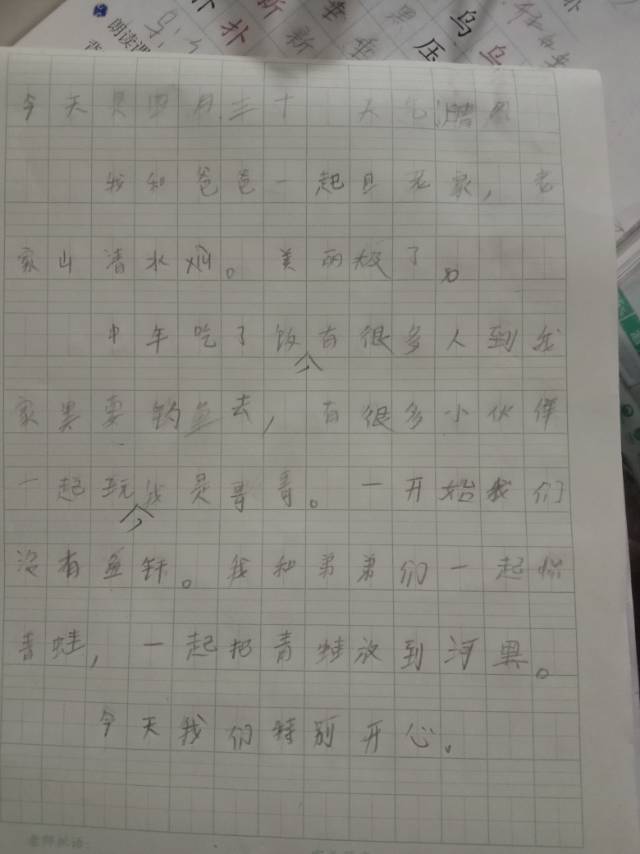 朗读
扑 扑 新 垂 黑 乌 乌 压
今天是四月三十 天气晴
我和爸爸一起回老家，老
家山清水。美丽极了。
中午吃了饭，有很多人到我
家里要钓鱼去，有很多小伙伴
一起玩，我是哥哥。一开始我们
没有鱼钎。我和弟弟们一起
青蛙，一起把青蛙放到河里。
今天我们特别开心。
老师批语：